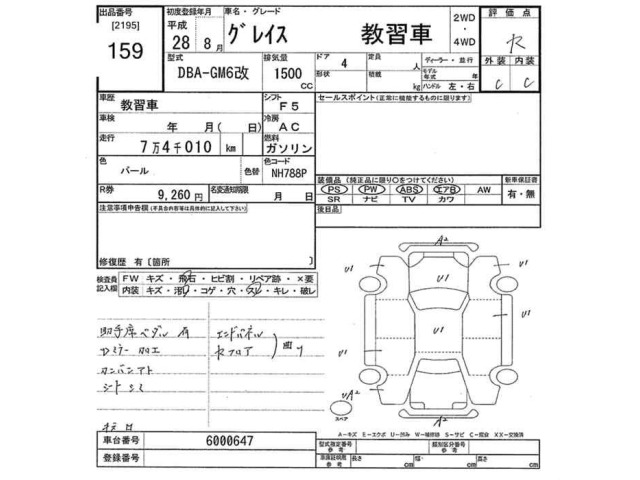 出品番号 初度登録年月 車名・グレード 2WD・4WD 評価点
[2195] 平成
159 28年8月 グレイス 教習車 R
型式 排気量 ドア 4 定員 人 ディーラー・並行 外装 内装
DBA-GM6改 1500 cc 形状 積載 kg モデル年式 年 ハンドル 左・右 C C
車歴 教習車 シフト F5 セールスポイント(正常に機能するものに限ります)
車検 年 月(日) 冷房 AC
走行 7万4千010 km 燃料 ガソリン
色 パール 色替 色コード NH788P
装備品(純正品に限り○をつけてください) 新車保証書
R券 9,260円 名変通知期限 月 日 PS PW ABS エアB AW 有・無
SR ナビ TV カワ
注意事項申告欄(不具合内容等は具体的に記入して下さい) 後日品
修復歴 有〔箇所 〕
検査員記入欄 FW キズ・飛石・ヒビ割・リペア跡・×要
内装 キズ・汚レ・コゲ・穴・スレ・キレ・破レ
助手席ペダル 有 エンドパネル
Dミラー加工
シートスミ
A2
U1 U1
U1
U1 U1 U1
U1
UA2
スペア A2
A-キズ E-エクボ U-凹み W-補修跡 S-サビ C-腐食 XX-交換済
車台番号 6000647 型式指定番号 参考 類別区分番号 参考
登録番号 長さ cm 幅 cm 高さ cm